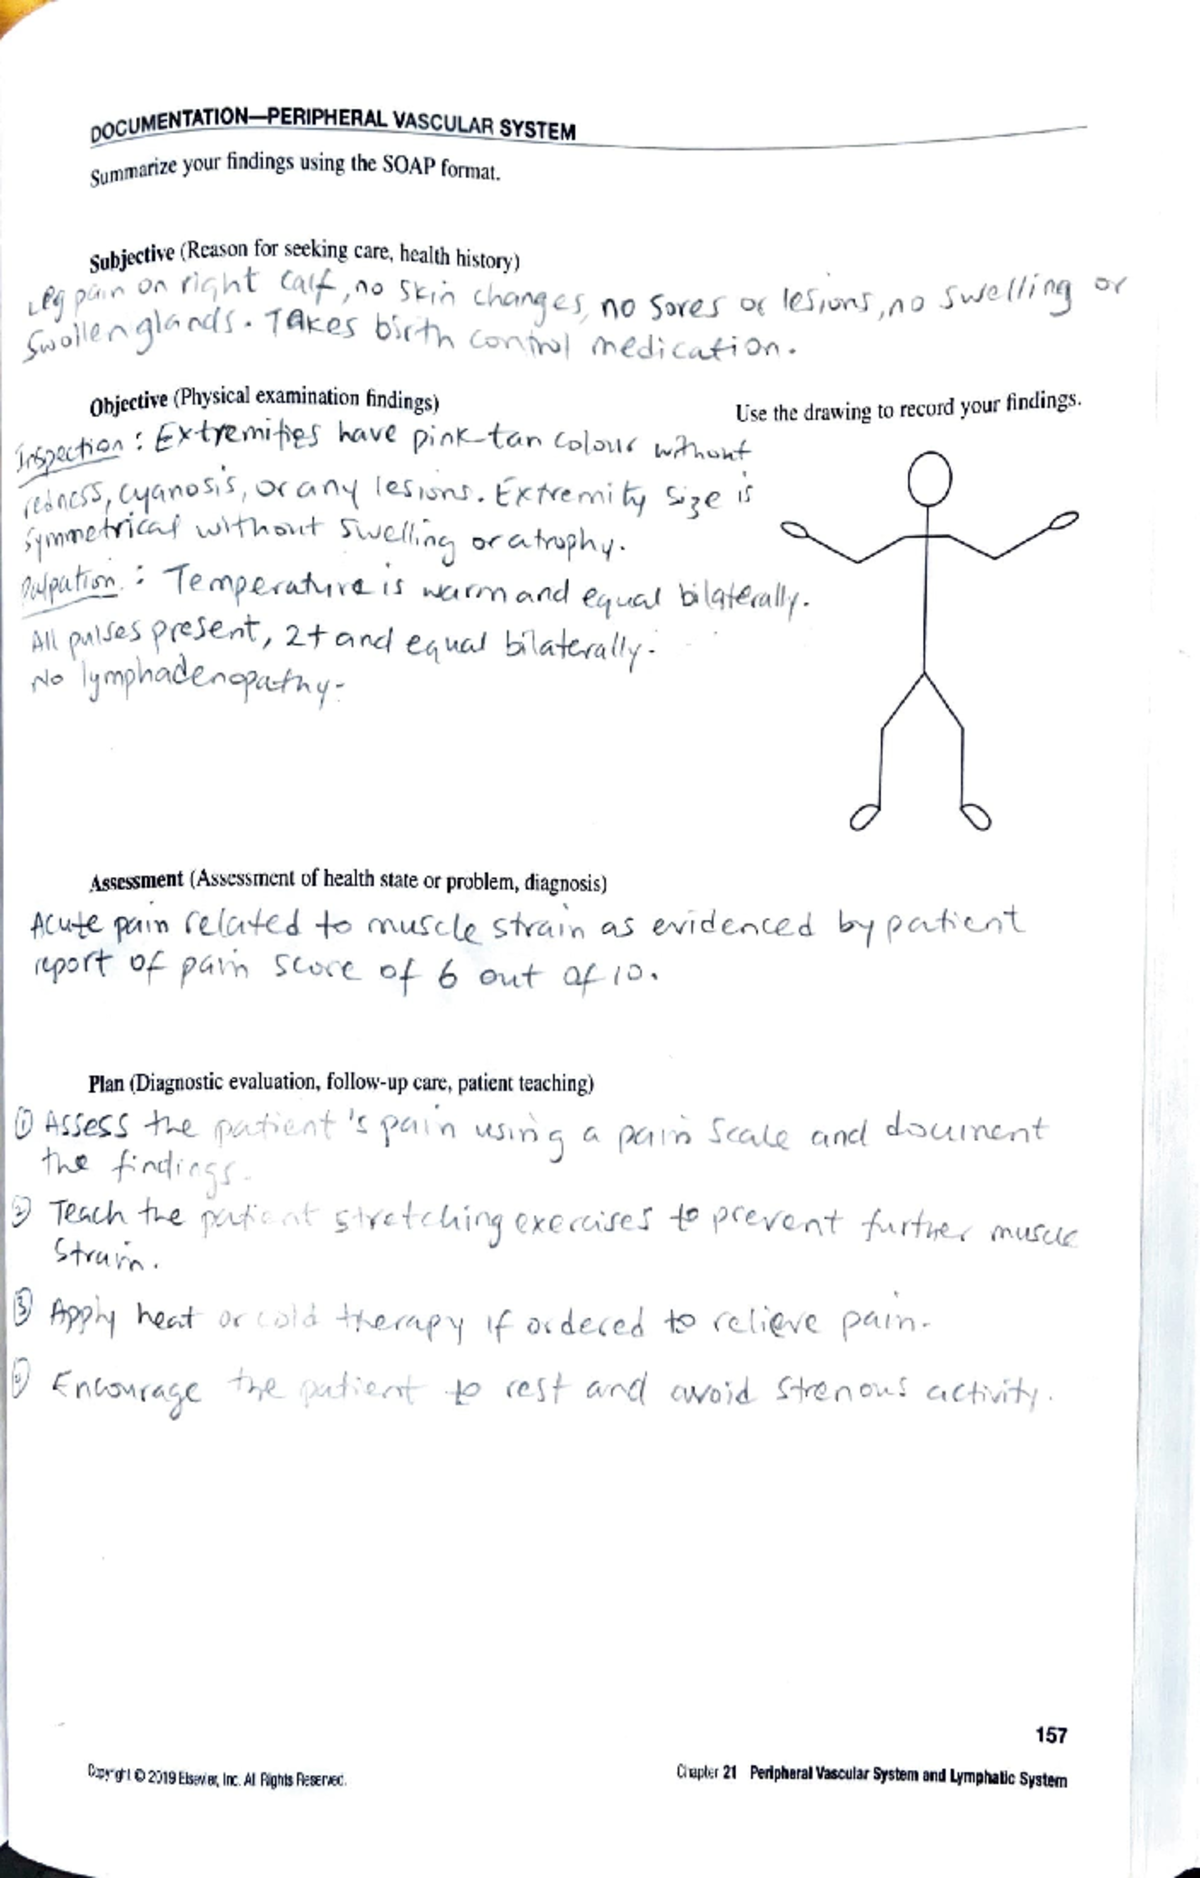 DOCUMENTATION—PERIPHERAL VASCULAR SYSTEM
Summarize your findings using the SOAP format.
Subjective (Reason for seeking care, health history)
Leg pain on right calf, no skin changes, no sores or lesions, no swelling or
Swollen glands. Takes birth control medication.
Objective (Physical examination findings)
Use the drawing to record your findings.
Inspection: Extremities have pink-tan colour without
redness, cyanosis, or any lesions. Extremity size is
symmetrical without swelling or atrophy.
Palpation: Temperature is warm and equal bilaterally.
All pulses present, 2+ and equal bilaterally.
No lymphadenopathy.
Assessment (Assessment of health state or problem, diagnosis)
Acute pain related to muscle strain as evidenced by patient
report of pain score of 6 out of 10.
Plan (Diagnostic evaluation, follow-up care, patient teaching)
① Assess the patient's pain using a pain scale and document
the findings.
② Teach the patient stretching exercises to prevent further muscle
strain.
③ Apply heat or cold therapy if ordered to relieve pain.
Encourage the patient to rest and avoid strenous activity.
157
Copyright © 2019 Elsevier, Inc. All Rights Reserved.
Chapter 21 Peripheral Vascular System and Lymphatic System